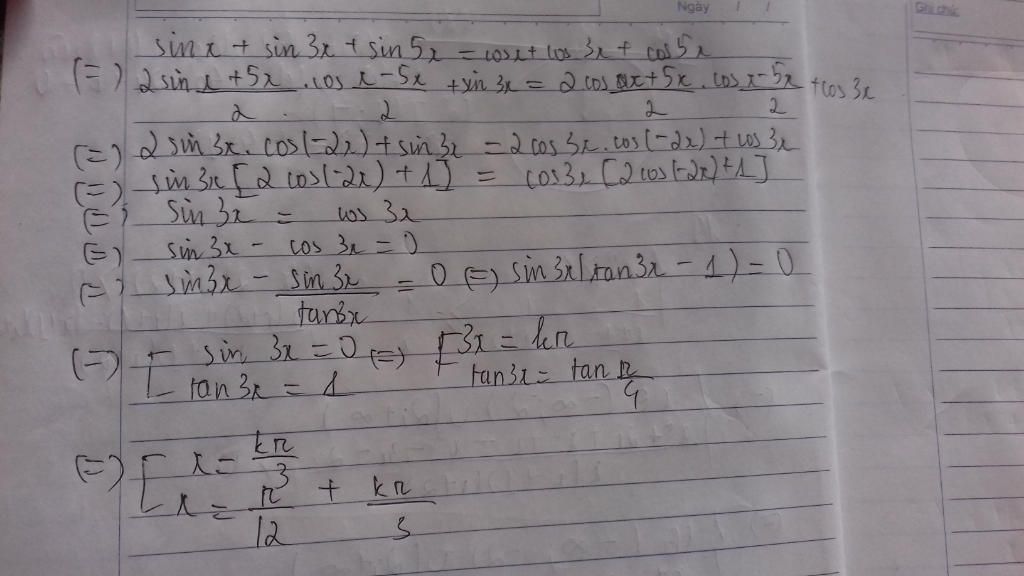 Ngày / /
Ghi chú
sin x + sin 3x + sin 5x = cosx + cos 3x + cos 5x
(=) 2 sin x + 5x / 2 . cos x - 5x / 2 + sin 3x = 2 cos x + 5x / 2 . cos x - 5x / 2 + cos 3x
(=) 2 sin 3x . cos(-2x) + sin 3x = 2 cos 3x . cos(-2x) + cos 3x
(=) sin 3x [2 cos(-2x) + 1] = cos3x [2 cos(-2x) + 1]
(=) sin 3x = cos 3x
(=) sin 3x - cos 3x = 0
(=) sin3x - sin 3x / tan3x = 0 (=) sin 3x(tan3x - 1) = 0
(=) [ sin 3x = 0 (=) [ 3x = kπ
tan 3x = 1 tan3x = tan π / 4
(=) [ x = kπ / 3
x = π / 12 + kπ / 3